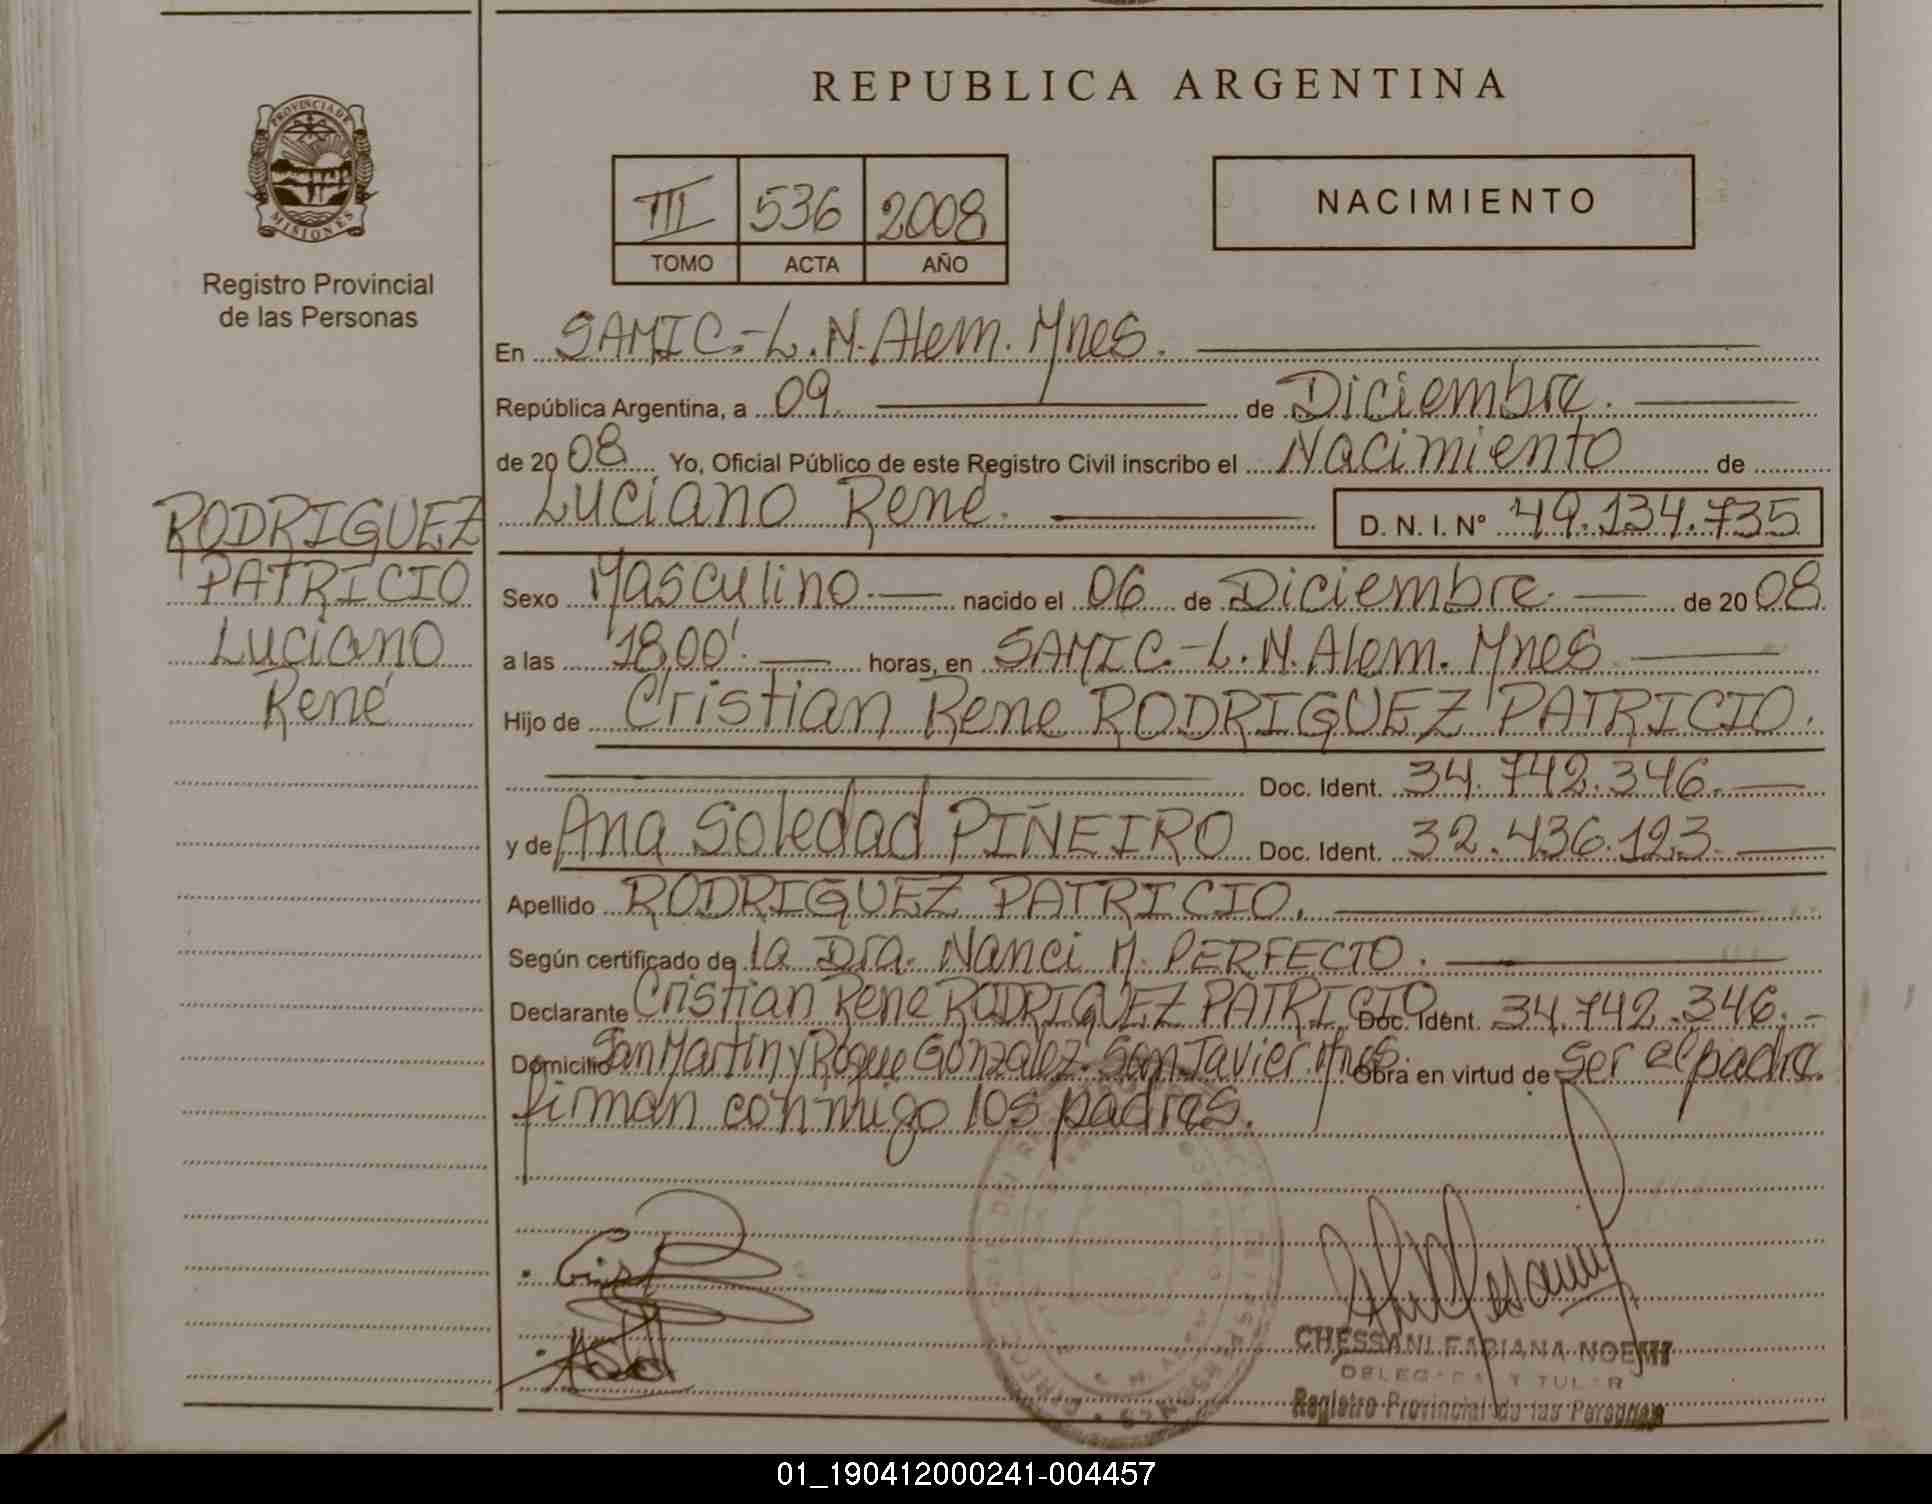 REPUBLICA ARGENTINA
PROVINCIA DE
MISIONES
Registro Provincial
de las Personas
III 536 2008
TOMO ACTA AÑO
NACIMIENTO
RODRIGUEZ
PATRICIO
Luciano
René
En SAMIC.-L.N.Alem. Mnes.
República Argentina, a 09. de Diciembre.
de 2008. Yo, Oficial Público de este Registro Civil inscribo el Nacimiento de
Luciano René. D. N. I. Nº 49.134.735
Sexo Masculino.- nacido el 06 de Diciembre. de 2008.
a las 18,00'. horas, en SAMIC.-L.N.Alem. Mnes
Hijo de Cristian Rene RODRIGUEZ PATRICIO.
Doc. Ident. 34.742.346.
y de Ana Soledad PIÑEIRO Doc. Ident. 32.436.123
Apellido RODRIGUEZ PATRICIO.
Según certificado de la Dra. Nanci M. PERFECTO.
Declarante Cristian Rene RODRIGUEZ PATRICIO Doc. Ident. 34.742.346.-
Domicilio San Martin y Roque Gonzalez. San Javier. Mnes. Obra en virtud de ser el padre.
firman conmigo los padres.
CHESSANI FABIANA NOEMI
DELEGADA TITULAR
Registro Provincial de las Personas
01_190412000241-004457